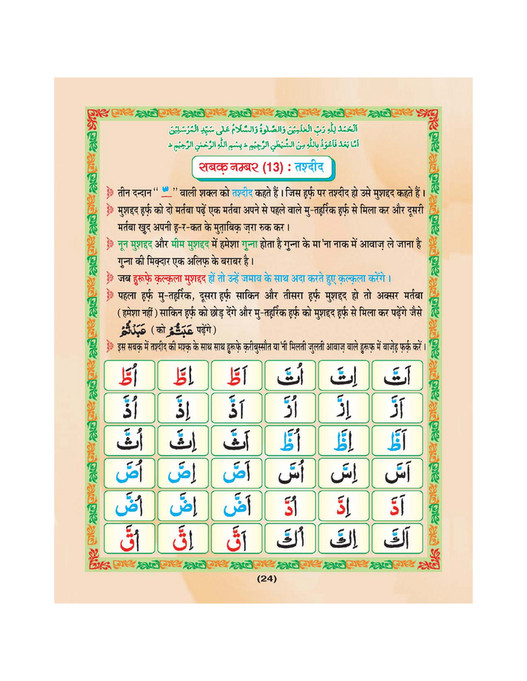 اَلْحَمْدُ لِلّٰهِ رَبِّ الْعٰلَمِیْنَ وَالصَّلٰوةُ وَالسَّلَامُ عَلٰی سَیِّدِ الْمُرْسَلِیْنَ
اَمَّا بَعْدُ فَاَعُوْذُ بِاللّٰهِ مِنَ الشَّیْطٰنِ الرَّجِیْمِ ط بِسْمِ اللّٰهِ الرَّحْمٰنِ الرَّحِیْمِ ط
सबक़ नम्बर (13) : तश्दीद
तीन दन्दान " ّ " वाली शक्ल को तश्दीद कहते हैं। जिस हर्फ़ पर तश्दीद हो उसे मुशद्दद कहते हैं।
मुशद्दद हर्फ़ को दो मर्तबा पढ़ें एक मर्तबा अपने से पहले वाले मु-तहर्रिक हर्फ़ से मिला कर और दूसरी
मर्तबा खुद अपनी ह-र-कत के मुताबिक़ ज़रा रुक कर।
नून मुशद्दद और मीम मुशद्दद में हमेशा गुन्ना होता है गुन्ना के मा'ना नाक में आवाज़ ले जाना है
गुन्ना की मिक़्दार एक अलिफ़ के बराबर है।
जब हुरूफ़े क़ल्क़ला मुशद्दद हों तो उन्हें जमाव के साथ अदा करते हुए क़ल्क़ला करेंगे।
पहला हर्फ़ मु-तहर्रिक, दूसरा हर्फ़ साकिन और तीसरा हर्फ़ मुशद्दद हो तो अक्सर मर्तबा
(हमेशा नहीं) साकिन हर्फ़ को छोड़ देंगे और मु-तहर्रिक हर्फ़ को मुशद्दद हर्फ़ से मिला कर पढ़ेंगे जैसे
عَبَدْتُّمْ (को عَبَتُّمْ पढ़ेंगे)
इस सबक़ में तश्दीद की मश्क़ के साथ साथ हुरूफ़े क़रीबुस्सौत या'नी मिलती जुलती आवाज़ वाले हुरूफ़ में वाज़ेह फ़र्क़ करें।
اَتَّ اِتَّ اُتَّ اَطَّ اِطَّ اُطَّ
اَزَّ اِزَّ اُزَّ اَذَّ اِذَّ اُذَّ
اَظَّ اِظَّ اُظَّ اَثَّ اِثَّ اُثَّ
اَسَّ اِسَّ اُسَّ اَصَّ اِصَّ اُصَّ
اَدَّ اِدَّ اُدَّ اَضَّ اِضَّ اُضَّ
اَكَّ اِكَّ اُكَّ اَقَّ اِقَّ اُقَّ
(24)